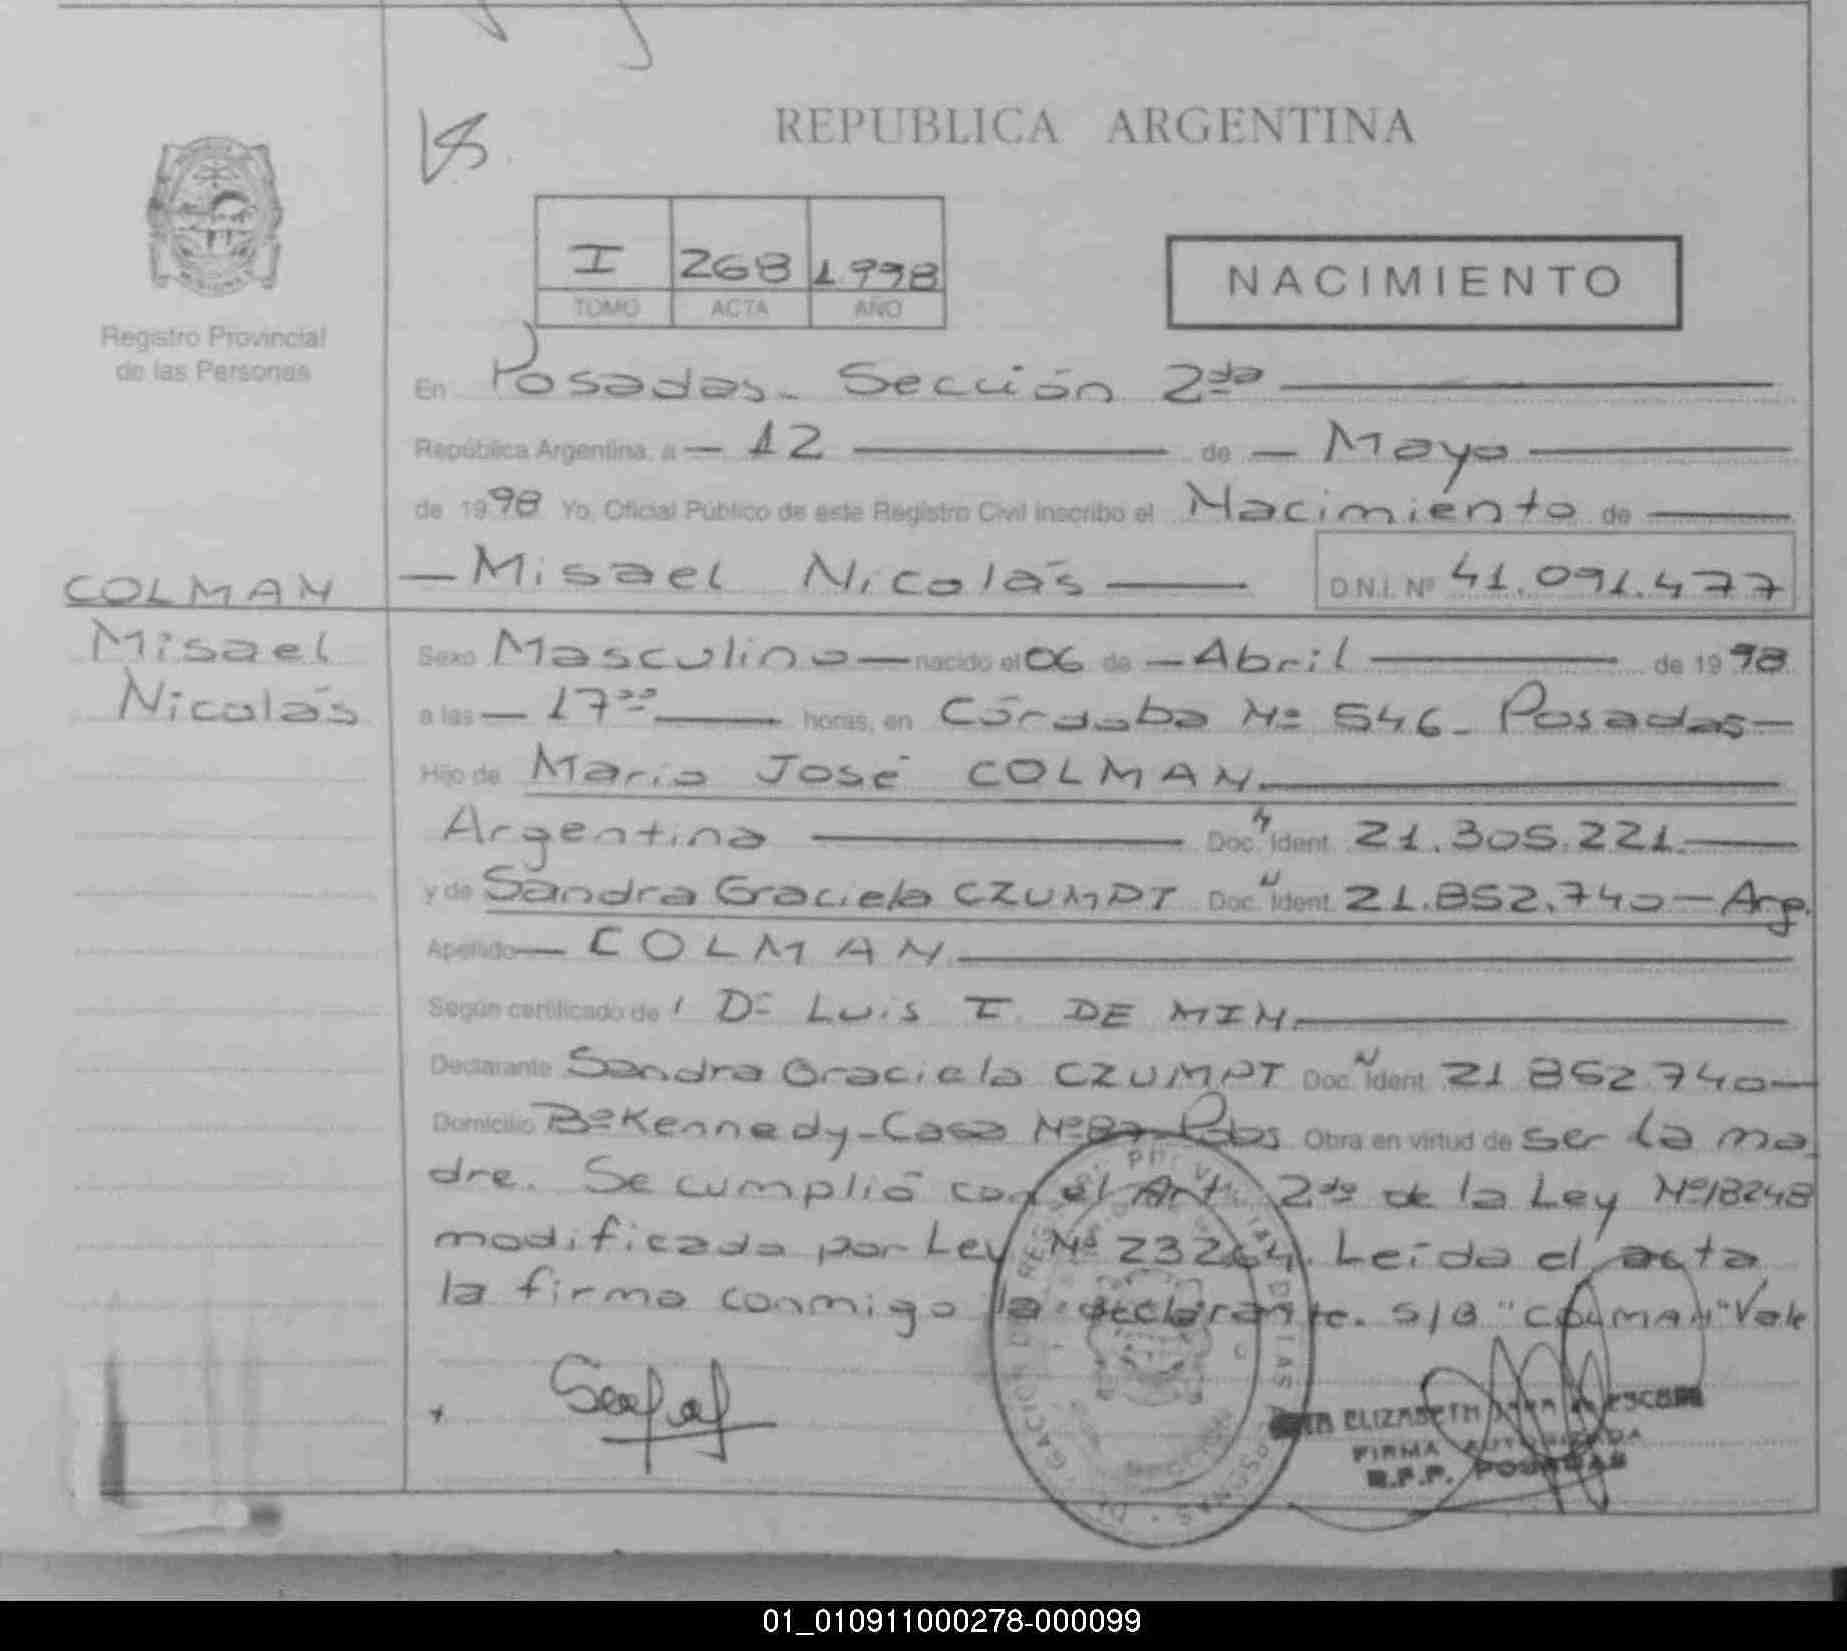 REPUBLICA ARGENTINA
I 268 1998
TOMO ACTA AÑO
NACIMIENTO
Registro Provincial
de las Personas
En Posadas. Sección 2da
República Argentina, a 12 de Mayo
de 1998 Yo, Oficial Público de este Registro Civil inscribo el Nacimiento de
Misael Nicolás D.N.I. Nº 41.091.477
COLMAN
Misael
Nicolás
Sexo Masculino nacido el 06 de Abril de 1998
a las 17 horas, en Córdoba Nº 546 - Posadas
Hijo de Mario José COLMAN
Argentina Doc. N Ident. 21.305.221
y de Sandra Graciela CZUMPT Doc. N Ident. 21.852.740 - Arg.
Apellido COLMAN
Según certificado de Dr Luis I. DE MIN.
Declarante Sandra Graciela CZUMPT Doc. N Ident. 21 852 740
Domicilio Bº Kennedy - Casa Nº Pdas Obra en virtud de ser la ma
dre. Se cumplió con el Art. 2do de la Ley Nº 18248
modificada por Ley Nº 23264. Leída el acta
la firma conmigo la declarante. S/B "COLMAN" Vale
ELIZABETH
FIRMA AUTORIZADA
R.P.P. POSADAS
01_010911000278-000099